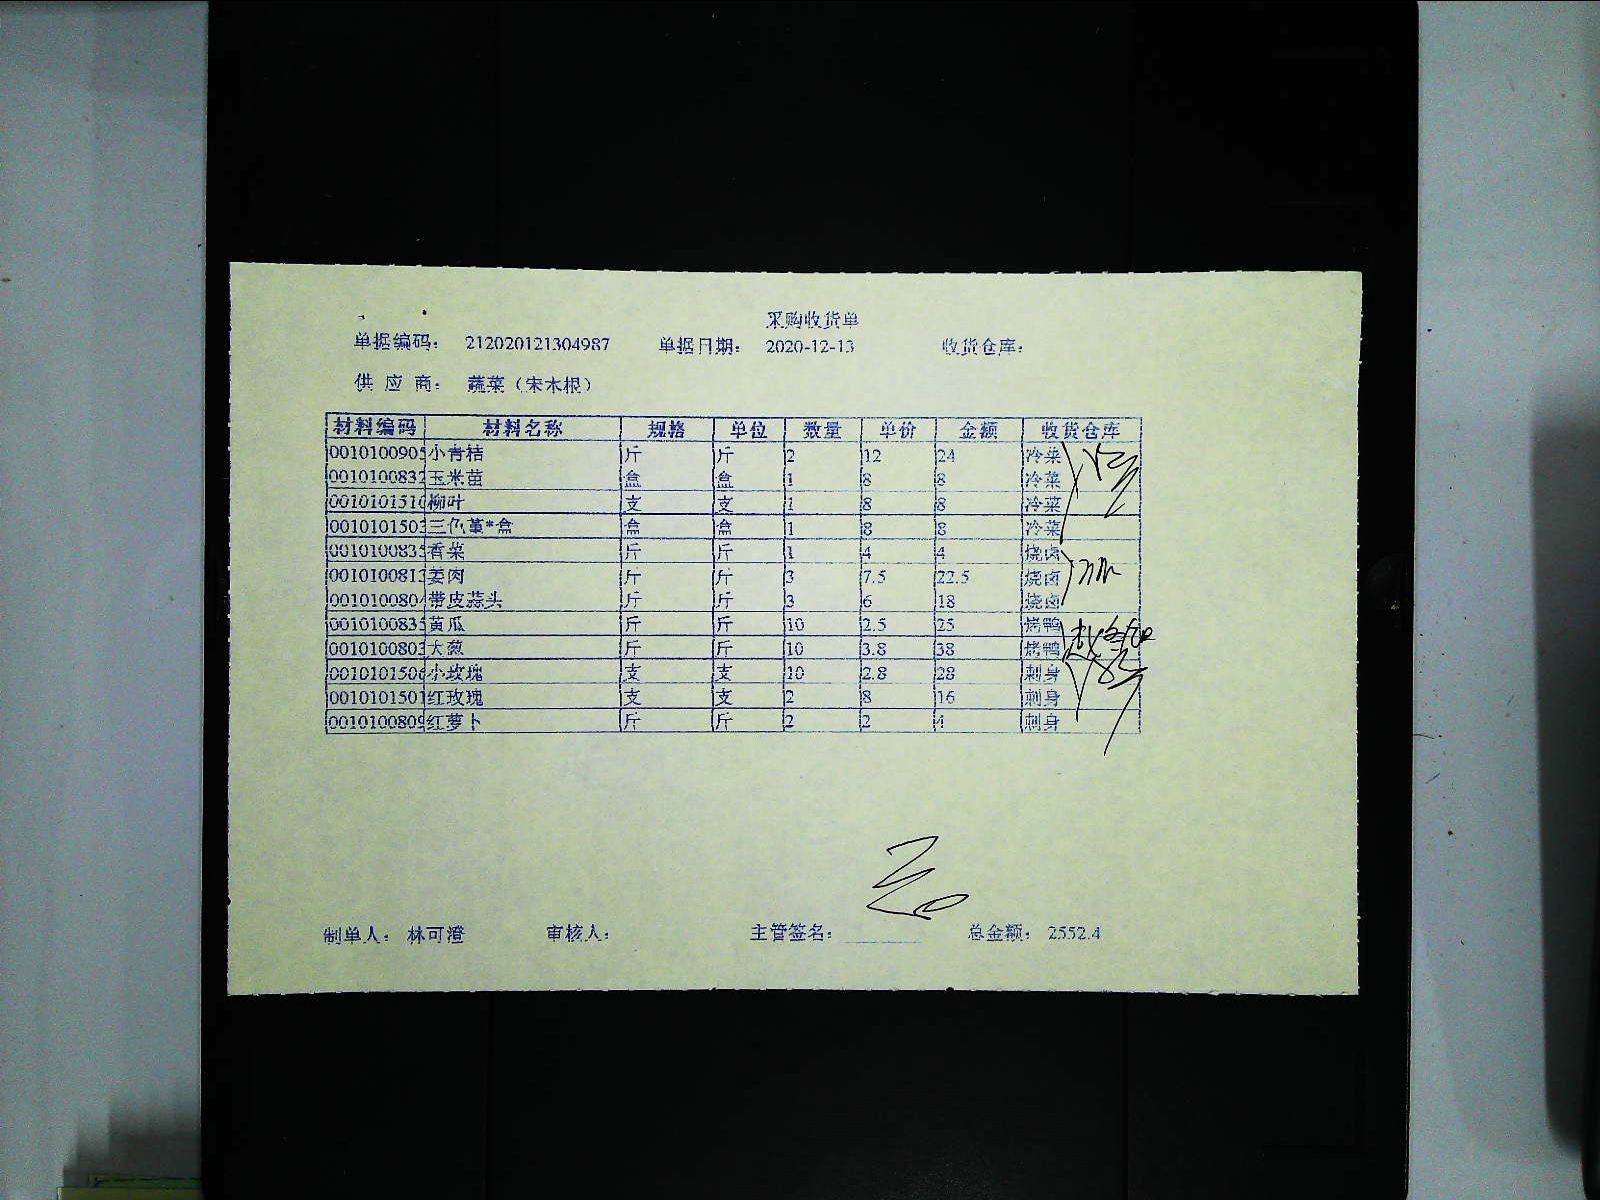 采购收货单
单据编码： 212020121304987 单据日期： 2020-12-13 收货仓库：
供 应 商： 蔬菜（宋木根）
材料编码 材料名称 规格 单位 数量 单价 金额 收货仓库
0010100905 小青桔 斤 斤 2 12 24 冷菜
0010100832 玉米苗 盒 盒 1 8 8 冷菜
0010101510 柳叶 支 支 1 8 8 冷菜
0010101503 三色堇*盒 盒 盒 1 8 8 冷菜
0010100835 香菜 斤 斤 1 4 4 烧卤
0010100813 姜肉 斤 斤 3 7.5 22.5 烧卤
001010080 带皮蒜头 斤 斤 3 6 18 烧卤
0010100835 黄瓜 斤 斤 10 2.5 25 烤鸭
0010100803 大葱 斤 斤 10 3.8 38 烤鸭
0010101506 小玫瑰 支 支 10 2.8 28 刺身
0010101501 红玫瑰 支 支 2 8 16 刺身
0010100809 红萝卜 斤 斤 2 2 4 刺身
制单人： 林可澄 审核人： 主管签名： 总金额： 2552.4